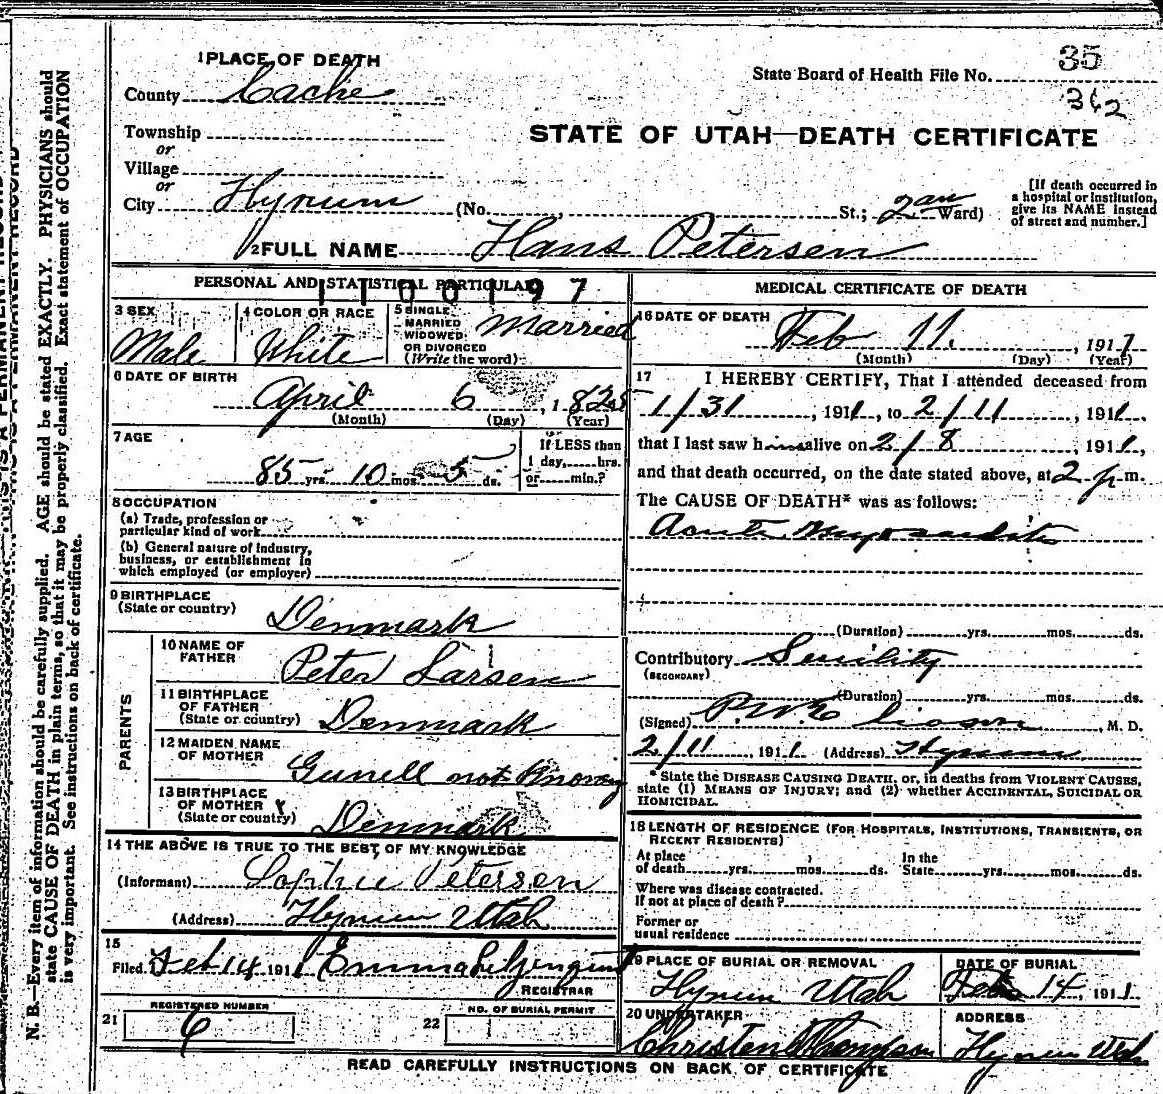 35
State Board of Health File No.
362
1 PLACE OF DEATH
County Cache
Township
or
Village
or
City Hyrum (No. St.; 2nd Ward)
STATE OF UTAH—DEATH CERTIFICATE
[If death occurred in
a hospital or institution,
give its NAME instead
of street and number.]
2 FULL NAME Hans Petersen
PERSONAL AND STATISTICAL PARTICULARS
1100197
3 SEX
Male
4 COLOR OR RACE
White
5 SINGLE
MARRIED
WIDOWED
OR DIVORCED
(Write the word)
Married
6 DATE OF BIRTH
April 6, 1825
(Month) (Day) (Year)
7 AGE
85 yrs. 10 mos. 5 ds.
If LESS than
1 day, hrs.
or min.?
8 OCCUPATION
(a) Trade, profession or
particular kind of work
(b) General nature of industry,
business, or establishment in
which employed (or employer)
9 BIRTHPLACE
(State or country) Denmark
PARENTS
10 NAME OF
FATHER Peter Larsen
11 BIRTHPLACE
OF FATHER
(State or country) Denmark
12 MAIDEN NAME
OF MOTHER Gunell not Knowg
13 BIRTHPLACE
OF MOTHER
(State or country) Denmark
14 THE ABOVE IS TRUE TO THE BEST OF MY KNOWLEDGE
(Informant) Sophie Petersen
(Address) Hyrum Utah
15
Filed Feb 14 1911 Emma
REGISTRAR
21 REGISTERED NUMBER
6
22 NO. OF BURIAL PERMIT
MEDICAL CERTIFICATE OF DEATH
16 DATE OF DEATH
Feb 11., 1911
(Month) (Day) (Year)
17 I HEREBY CERTIFY, That I attended deceased from
1/31, 1911, to 2/11, 1911.
that I last saw him alive on 2/8, 1911,
and that death occurred, on the date stated above, at 2 p. m.
The CAUSE OF DEATH* was as follows:
Acute Myocarditis
(Duration) yrs. mos. ds.
Contributory Senility
(SECONDARY)
(Duration) yrs. mos. ds.
(Signed) , M. D.
2/11, 1911 (Address) Hyrum
* State the DISEASE CAUSING DEATH, or, in deaths from VIOLENT CAUSES,
state (1) MEANS OF INJURY; and (2) whether ACCIDENTAL, SUICIDAL OR
HOMICIDAL.
18 LENGTH OF RESIDENCE (FOR HOSPITALS, INSTITUTIONS, TRANSIENTS, OR
RECENT RESIDENTS)
At place In the
of death yrs. mos. ds. State yrs. mos. ds.
Where was disease contracted.
If not at place of death?
Former or
usual residence
19 PLACE OF BURIAL OR REMOVAL
Hyrum Utah
DATE OF BURIAL
Feb 14, 1911.
20 UNDERTAKER
Christen Thompson
ADDRESS
Hyrum Utah
READ CAREFULLY INSTRUCTIONS ON BACK OF CERTIFICATE
N. B.—Every item of information should be carefully supplied. AGE should be stated EXACTLY. PHYSICIANS should
state CAUSE OF DEATH in plain terms, so that it may be properly classified. Exact statement of OCCUPATION
is very important. See instructions on back of certificate.